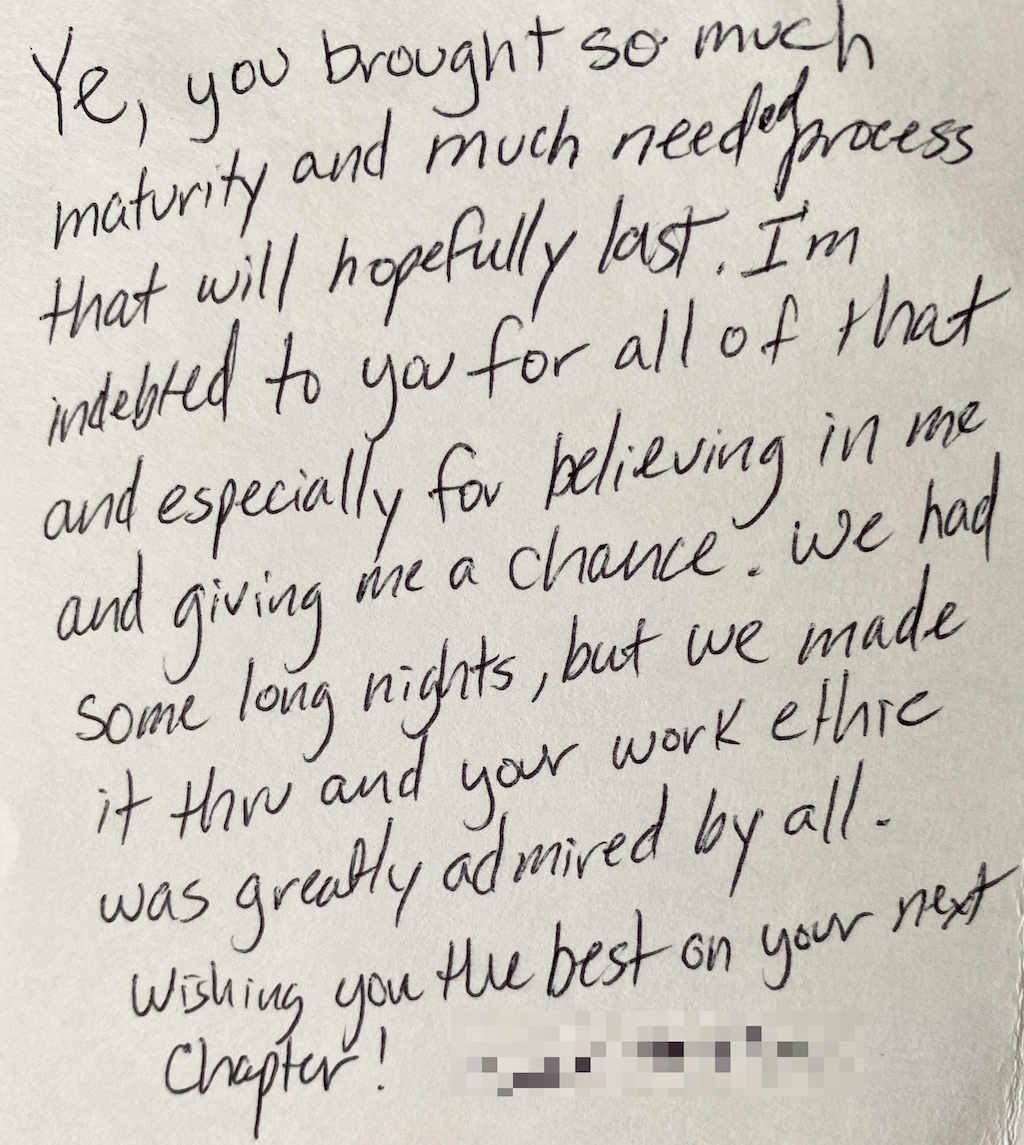 Ye, you brought so much
maturity and much needed process
that will hopefully last. I'm
indebted to you for all of that
and especially for believing in me
and giving me a chance. We had
some long nights, but we made
it thru and your work ethic
was greatly admired by all.
Wishing you the best on your next
Chapter!